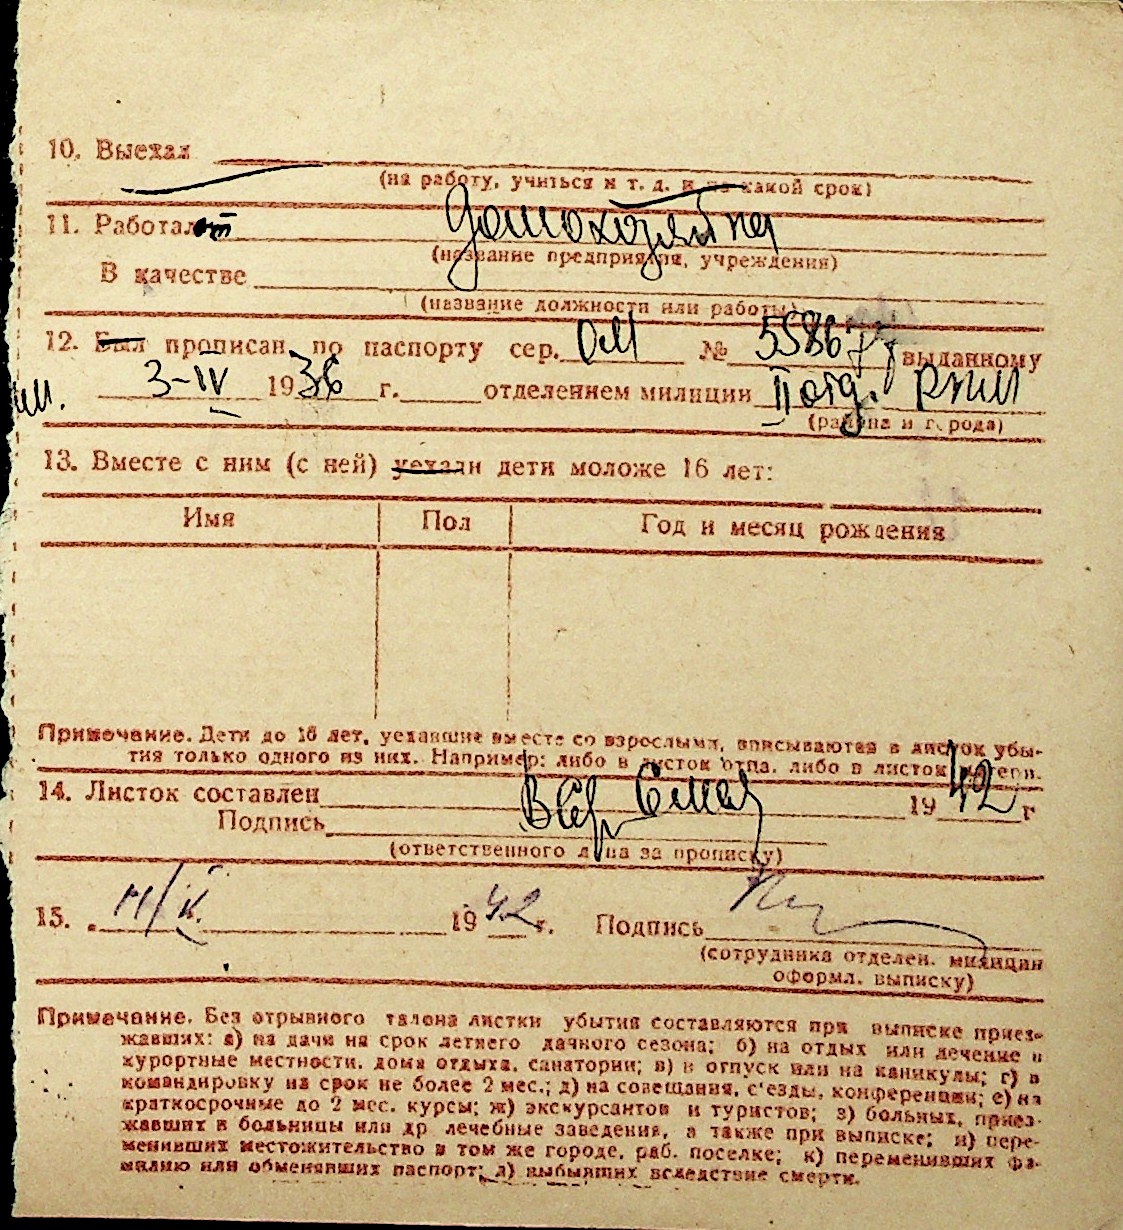 10. Выехал
(на работу, учиться и т. д. и на какой срок)
11. Работает домохозяйка
(название предприятия, учреждения)
В качестве
(название должности или работы)
12. Был прописан по паспорту сер. ОМ № 558677 выданному
3-IV 1936 г. отделением милиции II отд. РКМ
(района и города)
13. Вместе с ним (с ней) уехали дети моложе 16 лет:
Имя Пол Год и месяц рождения
Примечание. Дети до 16 лет, уехавшие вместе со взрослыми, вписываются в листок убы-
тия только одного из них. Например: либо в листок отца, либо в листок матери.
14. Листок составлен 1942 г
Подпись
(ответственного лица за прописку)
15. 1942 г. Подпись
(сотрудника отделен. милиции
оформл. выписку)
Примечание. Без отрывного талона листки убытия составляются при выписке приез-
жавших: а) на дачи на срок летнего дачного сезона; б) на отдых или лечение в
курортные местности, дома отдыха, санатории; в) в отпуск или на каникулы; г) в
командировку на срок не более 2 мес.; д) на совещания, с'езды, конференции; е) на
краткосрочные до 2 мес. курсы; ж) экскурсантов и туристов; з) больных, приез-
жавших в больницы или др лечебные заведения, а также при выписке; и) пере-
менивших местожительство в том же городе, раб. поселке; к) переменивших фа-
милию или обменявших паспорт; л) выбывших вследствие смерти.